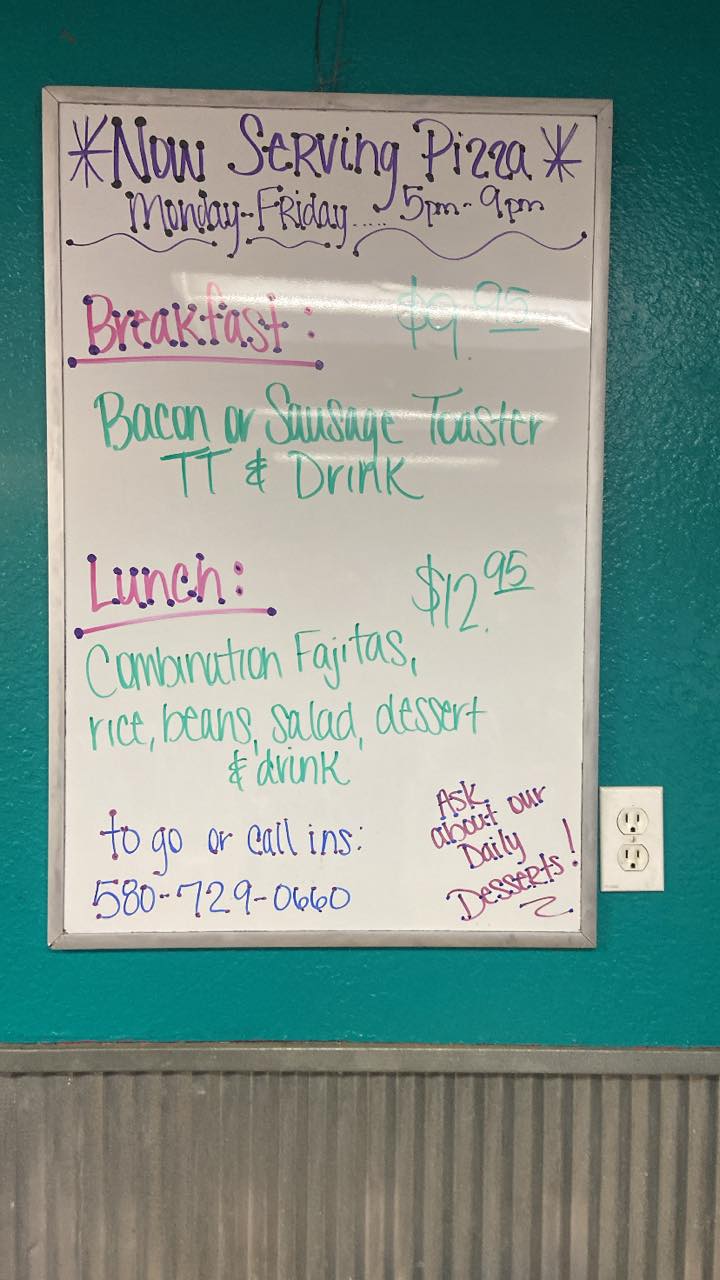 *Now Serving Pizza*
Monday-Friday.... 5pm-9pm
Breakfast: $9.95
Bacon or Sausage Toaster
TT & Drink
Lunch: $12.95
Combination Fajitas,
rice, beans, salad, dessert
& drink
Ask
about our
Daily
Desserts!
to go or call ins:
580-729-0660